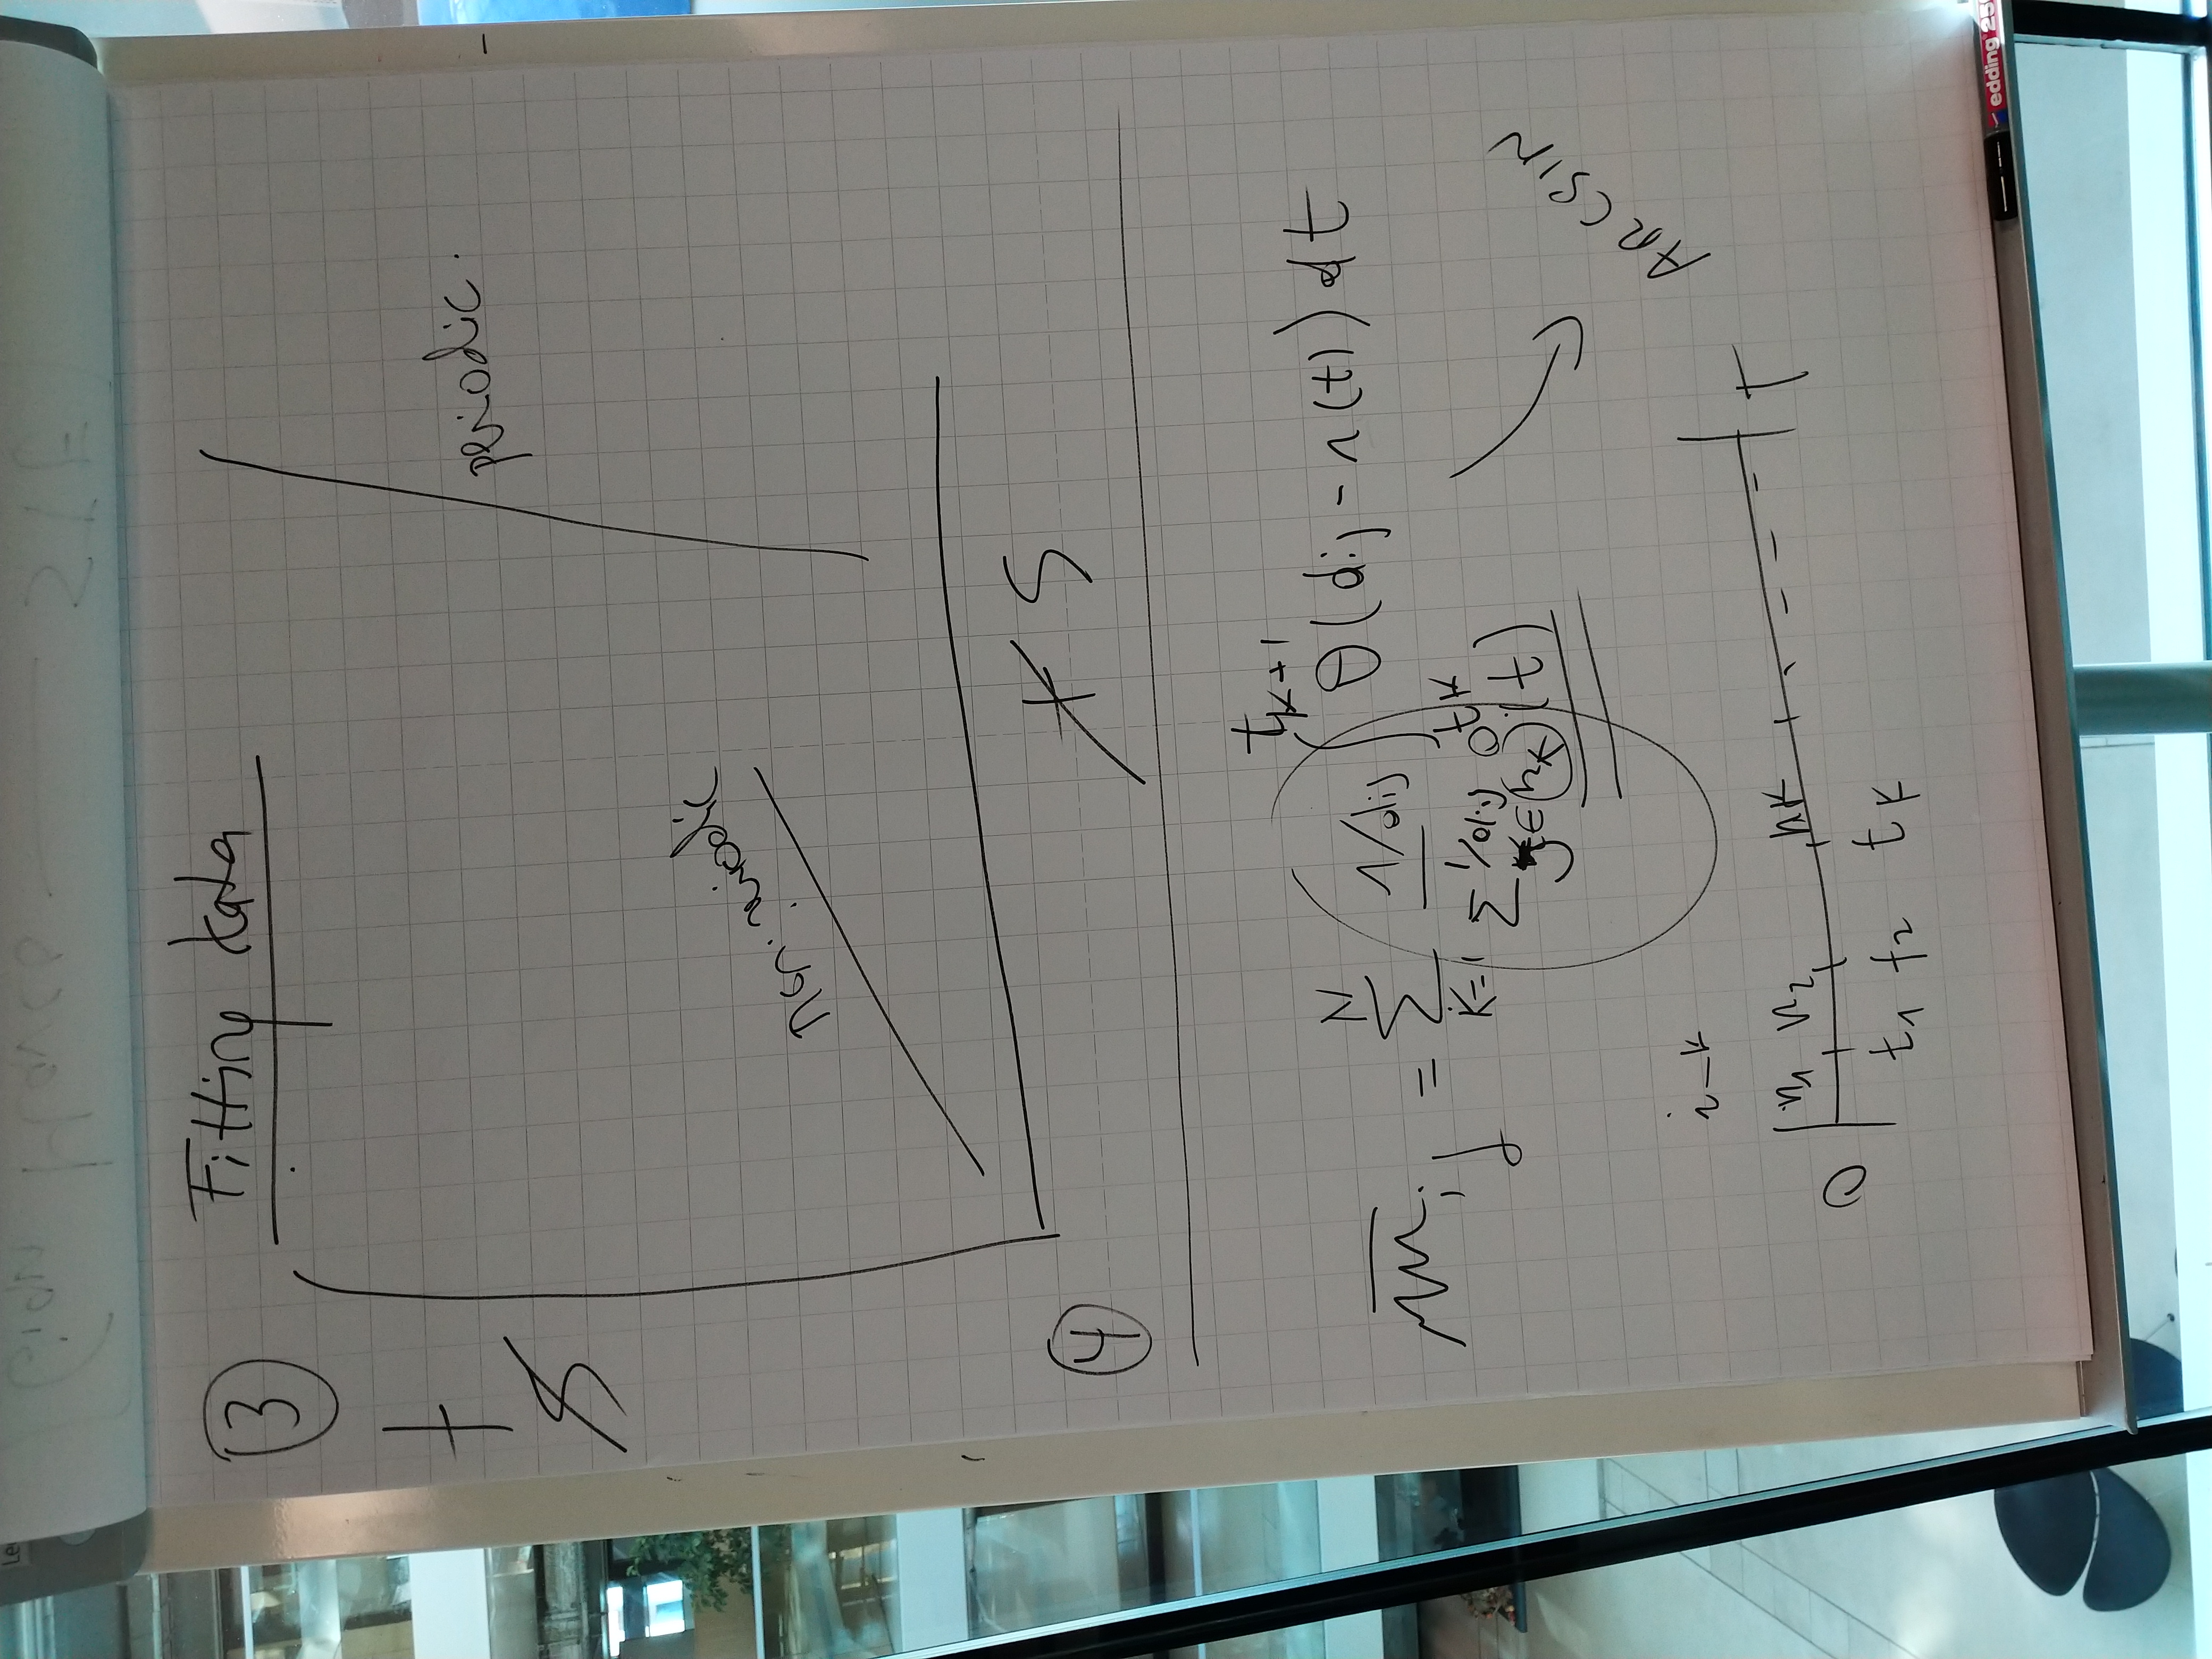 ③ Fitting data
t
S
periodic.
non-periodic
t S
④
m̅ij = Σ_{K=1}^{N} (1/dij) / (Σ_{j∈(n_K)(t)} 1/dij) ∫_{tK}^{tK+1} Θ(dij - r(t)) dt
ARCSIN
i-k
n1 n2 nK
0 T
t1 t2 tK
edding 25